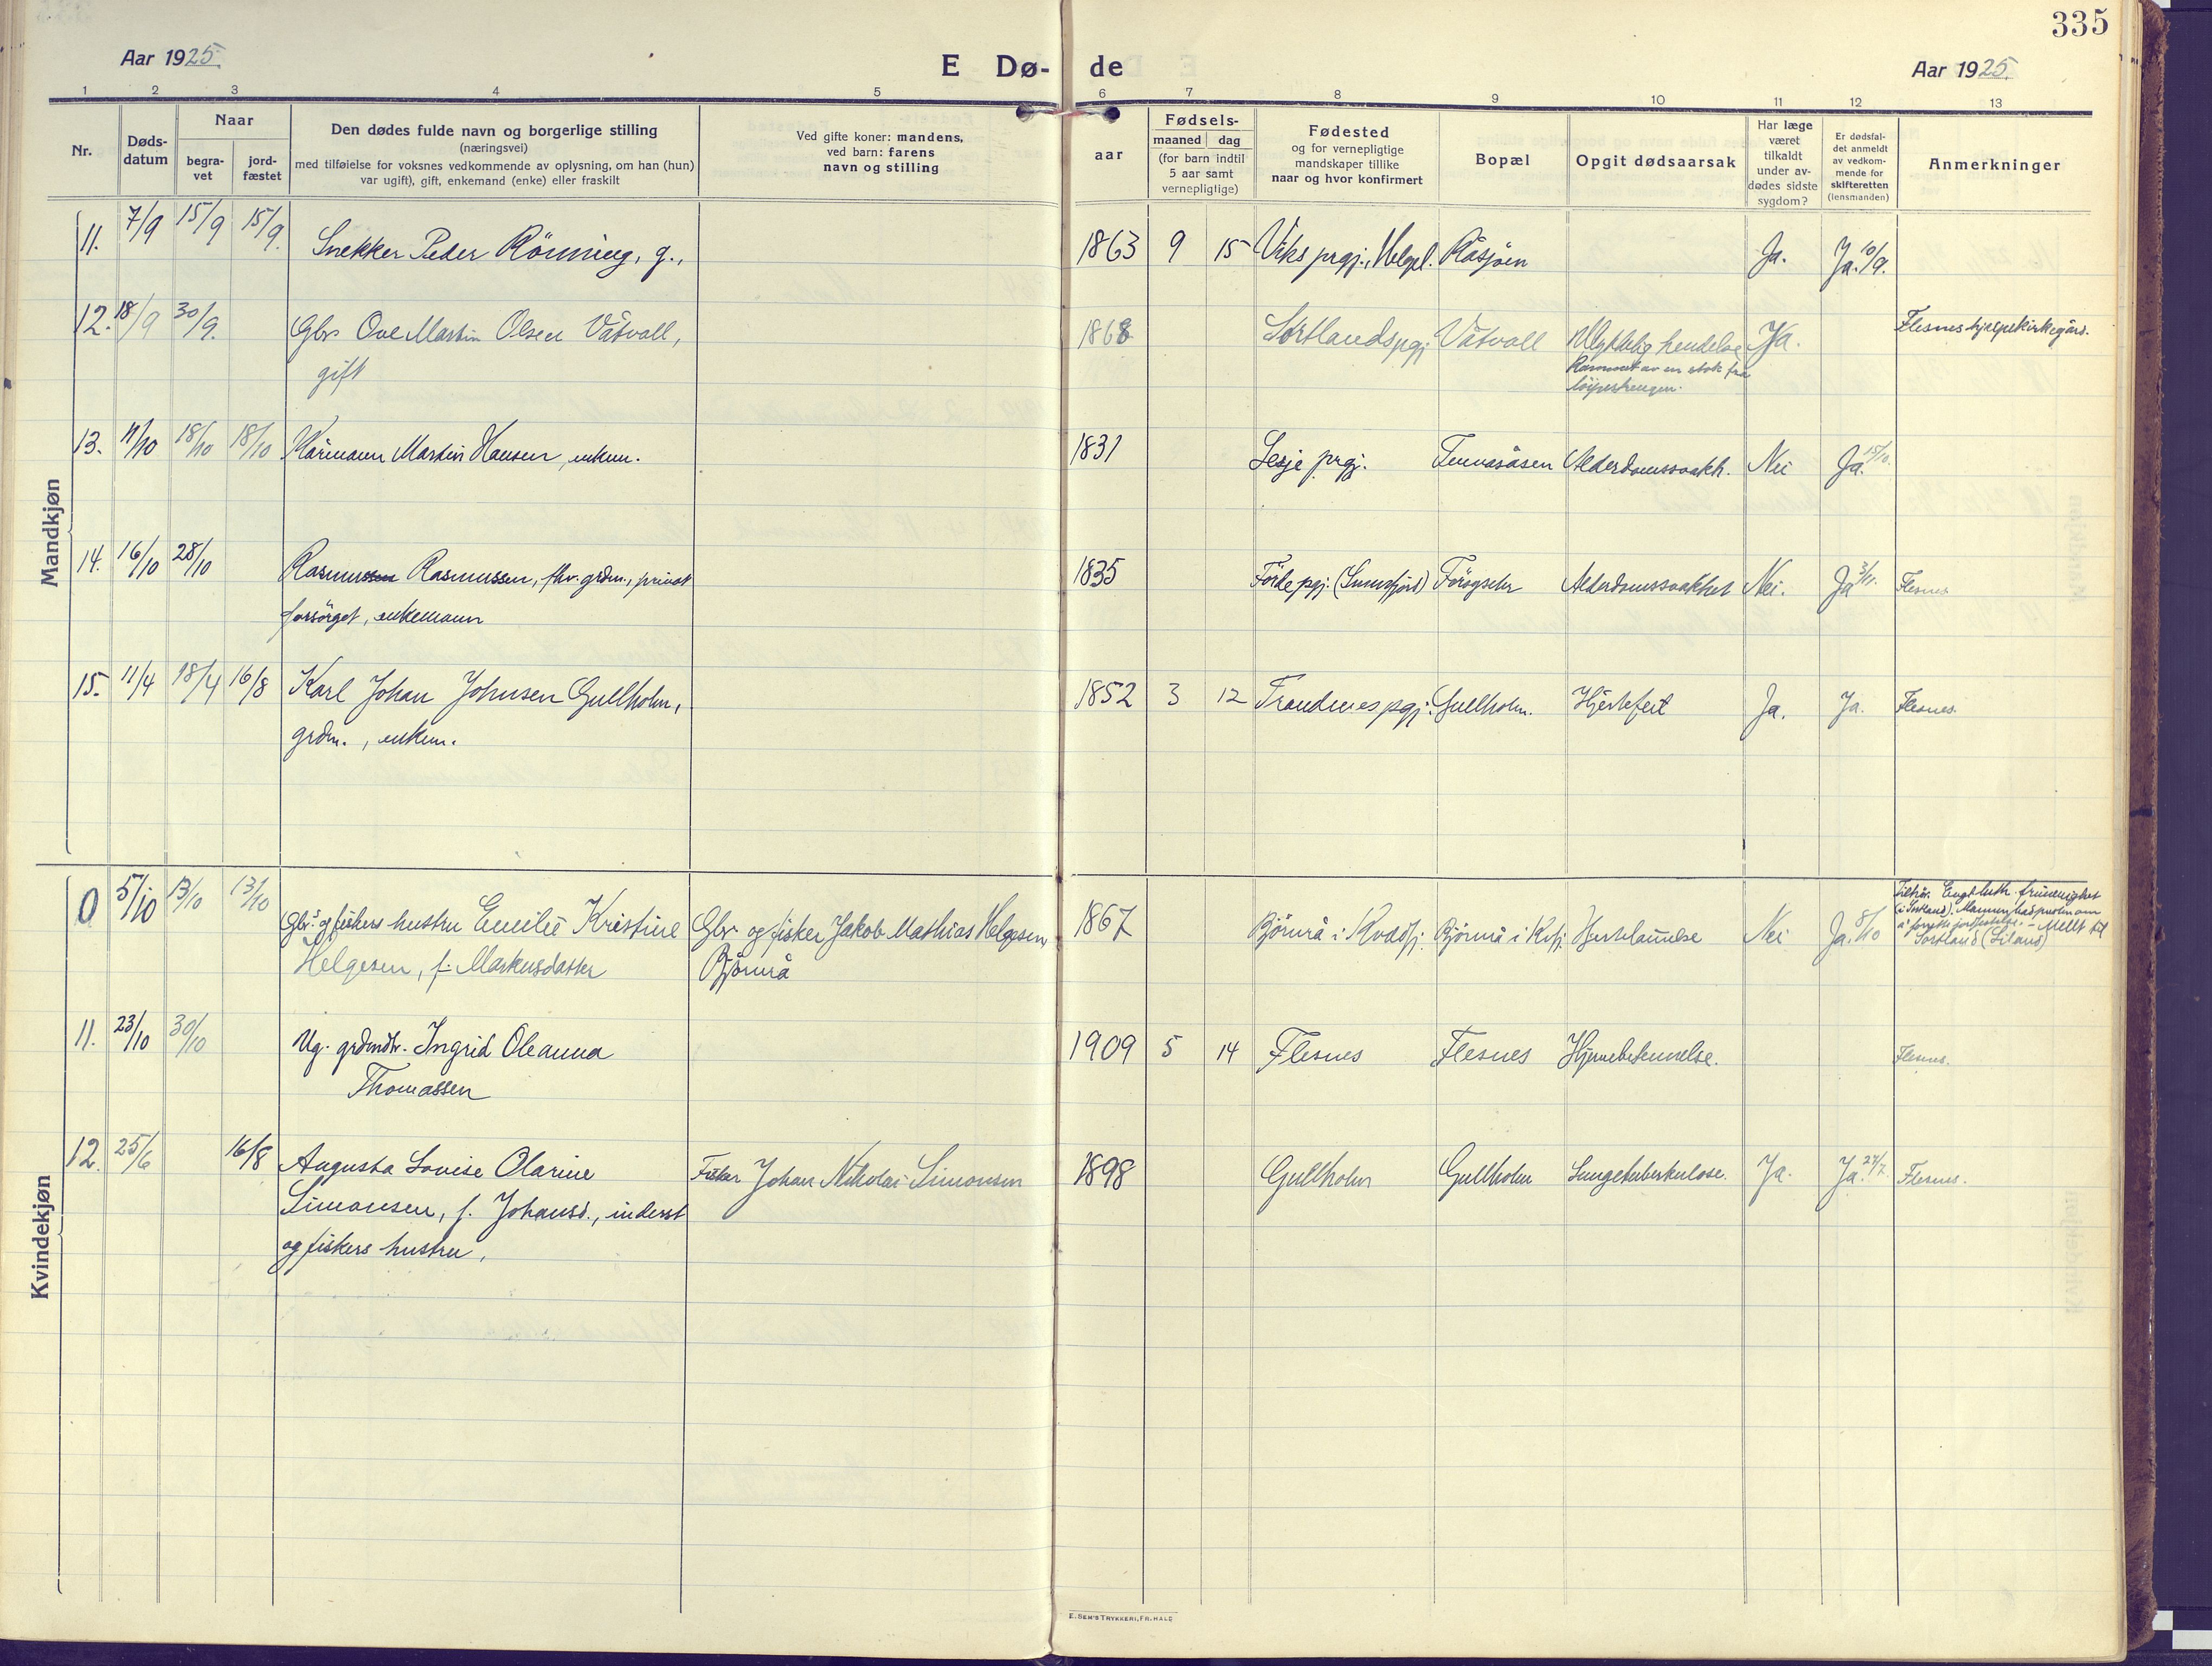 335
Aar 1925.
E Dø-
de
Aar 1925.
1 2 3 4 5 6 7 8 9 10 11 12 13
Nr.
Døds-
datum
Naar
begra-
vet
jord-
fæstet
Den dødes fulde navn og borgerlige stilling
(næringsvei)
med tilføielse for voksnes vedkommende av oplysning, om han (hun)
var ugift), gift, enkemand (enke) eller fraskilt
Ved gifte koner: mandens,
ved barn: farens
navn og stilling
aar
Fødsels-
maaned dag
(for barn indtil
5 aar samt
vernepligtige)
Fødested
og for vernepligtige
mandskaper tillike
naar og hvor konfirmert
Bopæl
Opgit dødsaarsak
Har læge
været
tilkaldt
under av-
dødes sidste
sygdom?
Er dødsfal-
det anmeldt
av vedkom-
mende for
skifteretten
(lensmanden)
Anmerkninger
Mandkjøn
11. 7/9 15/9 15/9. Snekker Peder Rönning, g., 1863 9 15 Viks prgj., Helgel. Råsjøen Ja. Ja. 10/9.
12. 18/9 30/9. Gbr. Ove Martin Olsen Våtvoll, 1868 Sortlands pgj. Våtvoll Ulykkelig hendelse Ja. Flesnes hjelpekirkegård.
gift
Rammet av en stok fra
løipestrengen.
13. 11/10 18/10 18/10 Kårmann Martin Hansen, enkem. 1831 Lesje prgj. Tennasåsen Alderdomssvakh. Nei Ja. 15/10.
14. 16/10 28/10 Rasmus Rasmussen, fhv. grdm., privat 1835 Förde pgj. (Sunnfjord) Alderdomssvakhet Nei. Ja 3/11. Flesnes
forsörget, enkemann
15. 11/4 18/4 16/8 Karl Johan Johnsen Gullholm, 1852 3 12 Trondenes pgj. Gullholm. Hjertefeil Ja. Ja. Flesnes.
grdm., enkem.
Kvindekjøn
10 5/10 13/10 13/10 Gbr.s og fiskers hustru Emilie Kristine Gbr. og fisker Jakob Mathias Helgesen 1867 Bjørnrå i Kvædfj. Bjørnrå i Kvfj. Hjertelammelse Nei Ja. 8/10
Helgesen, f. Markusdatter Bjørnrå
Tilhör. Evgl. luth. frimenighet
(i Sortland). Mannen
å forrette jordfestelse. - Meldt til
Sortland
11. 23/10 30/10 Ug. grdmdtr. Ingrid Oleanna 1909 5 14 Flesnes Flesnes Hjernebetennelse. Flesnes.
Thomassen
12. 25/6 16/8 Augusta Lovise Olarine Fisker Johan Nikolai Simonsen 1898 Gullholm Gullholm Lungetuberkulose. Ja. Ja. 27/7. Flesnes.
Simonsen, f. Johansd., inderst
og fiskers hustru.
E. SEM'S TRYKKERI, FR.HALD